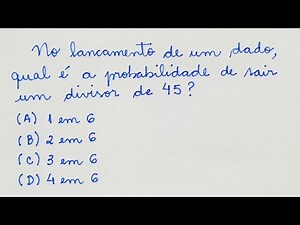 No lancamento de um dado,
qual é a probabilidade de sair
um divisor de 45?
(A) 1 em 6
(B) 2 em 6
(C) 3 em 6
(D) 4 em 6